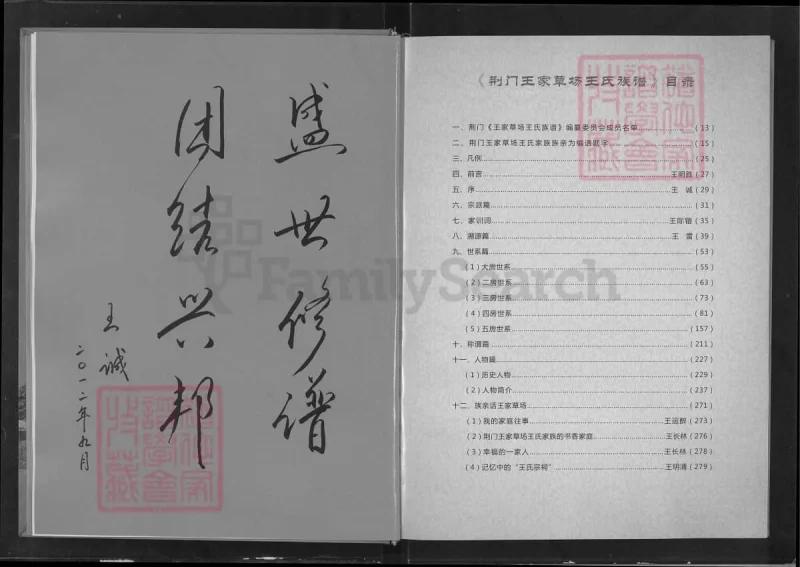 盛世修谱
团结兴邦
王诚
二〇一二年九月
《荆门王家草场王氏族谱》目录
一、荆门《王家草场王氏族谱》编纂委员会成员名单 (13)
二、荆门王家草场王氏家族族亲为编谱题字 (15)
三、凡例 (25)
四、前言 王明胜 (27)
五、序 王 诚 (29)
六、宗派篇 (31)
七、家训词 (35)
八、溯源篇 王 雷 (39)
九、世系篇 (53)
(1)大房世系 (55)
(2)二房世系 (63)
(3)三房世系 (73)
(4)四房世系 (81)
(5)五房世系 (157)
十、称谓篇 (211)
十一、人物篇 (227)
(1)历史人物 (229)
(2)人物简介 (237)
十二、族亲话王家草场 (271)
(1)我的家庭往事 (273)
(2)荆门王家草场王氏家族的书香家庭 王长林 (276)
(3)幸福的一家人 王长林 (278)
(4)记忆中的“王氏宗祠” 王明清 (279)
FamilySearch